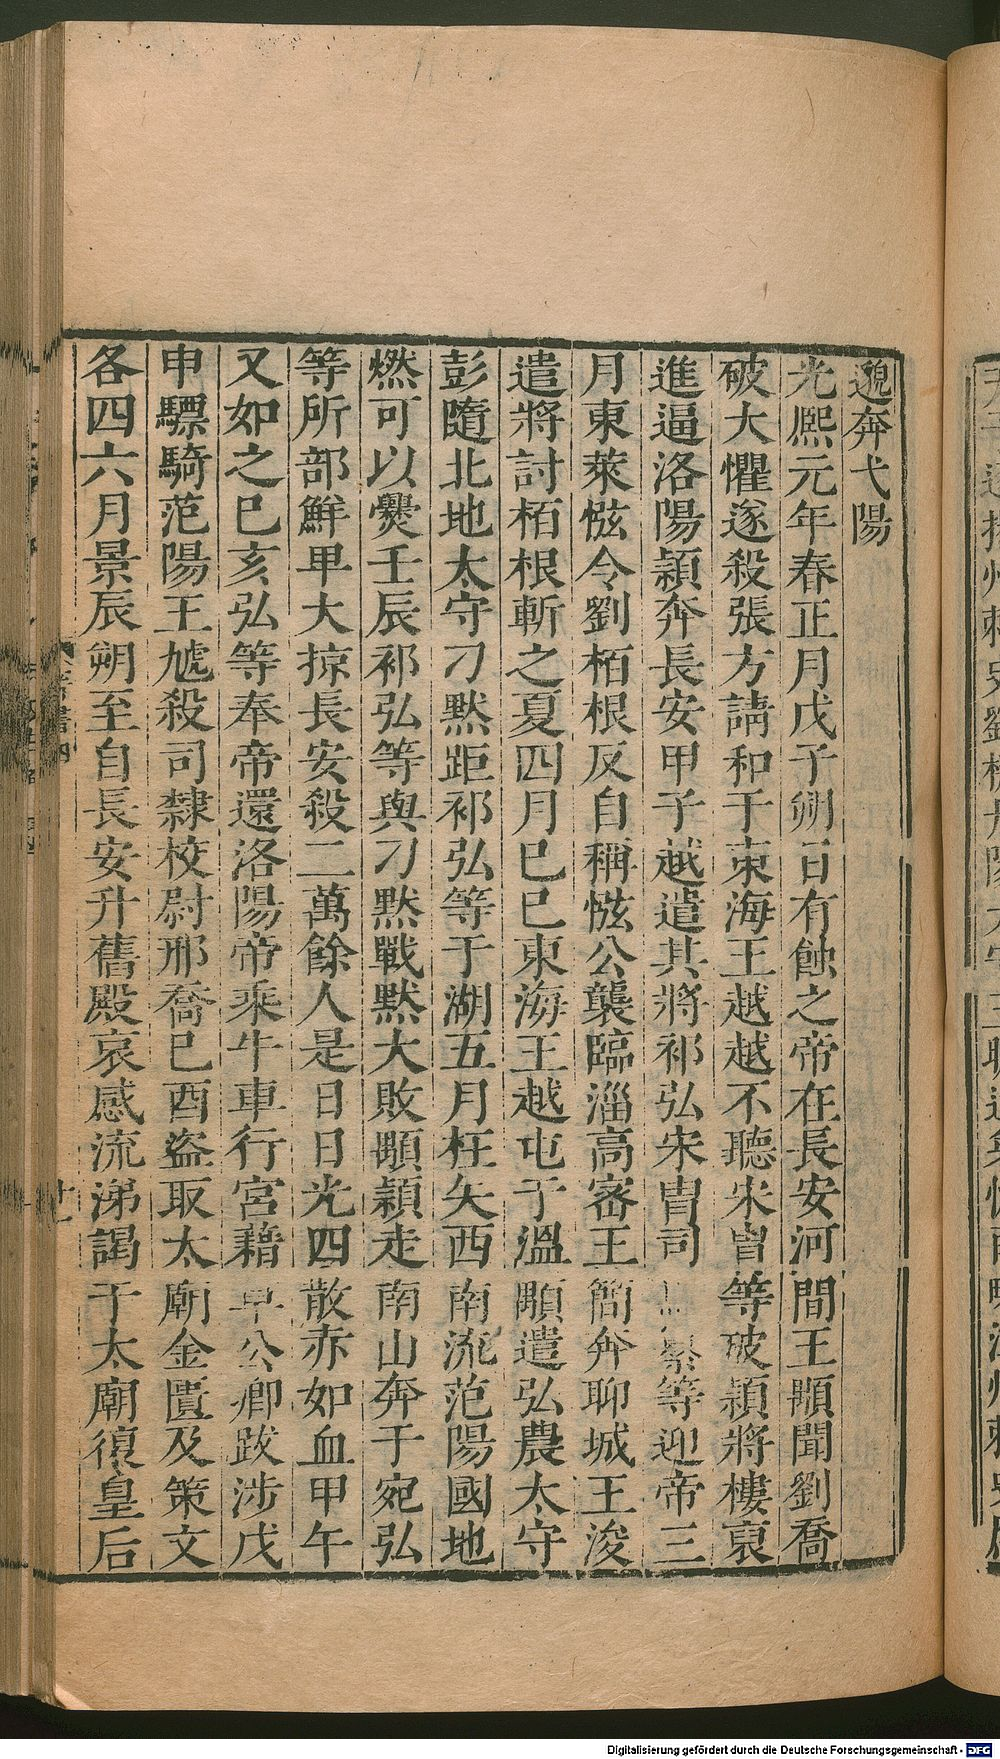 邈奔弋陽
光熙元年春正月戊子朔日有蝕之帝在長安河間王顒聞劉喬
破大懼遂殺張方請和于東海王越越不聽宋胄等破穎將樓裒
進逼洛陽穎奔長安甲子越遣其將祁弘宋胄司馬纂等迎帝三
月東萊惤令劉栢根反自稱惤公襲臨淄高密王簡奔聊城王浚
遣將討栢根斬之夏四月己巳東海王越屯于溫顒遣弘農太守
彭隨北地太守刁默距祁弘等于湖五月枉矢西南流范陽國地
燃可以爨壬辰祁弘等與刁默戰默大敗顒穎走南山奔于宛弘
等所部鮮卑大掠長安殺二萬餘人是日日光四散赤如血甲午
又如之己亥弘等奉帝還洛陽帝乘牛車行宮藉草公卿跋涉戊
申驃騎范陽王虓殺司隸校尉邢喬己酉盜取太廟金匱及策文
各四六月景辰朔至自長安升舊殿哀感流涕謁于太廟復皇后
Digitalisierung gefördert durch die Deutsche Forschungsgemeinschaft - DFG